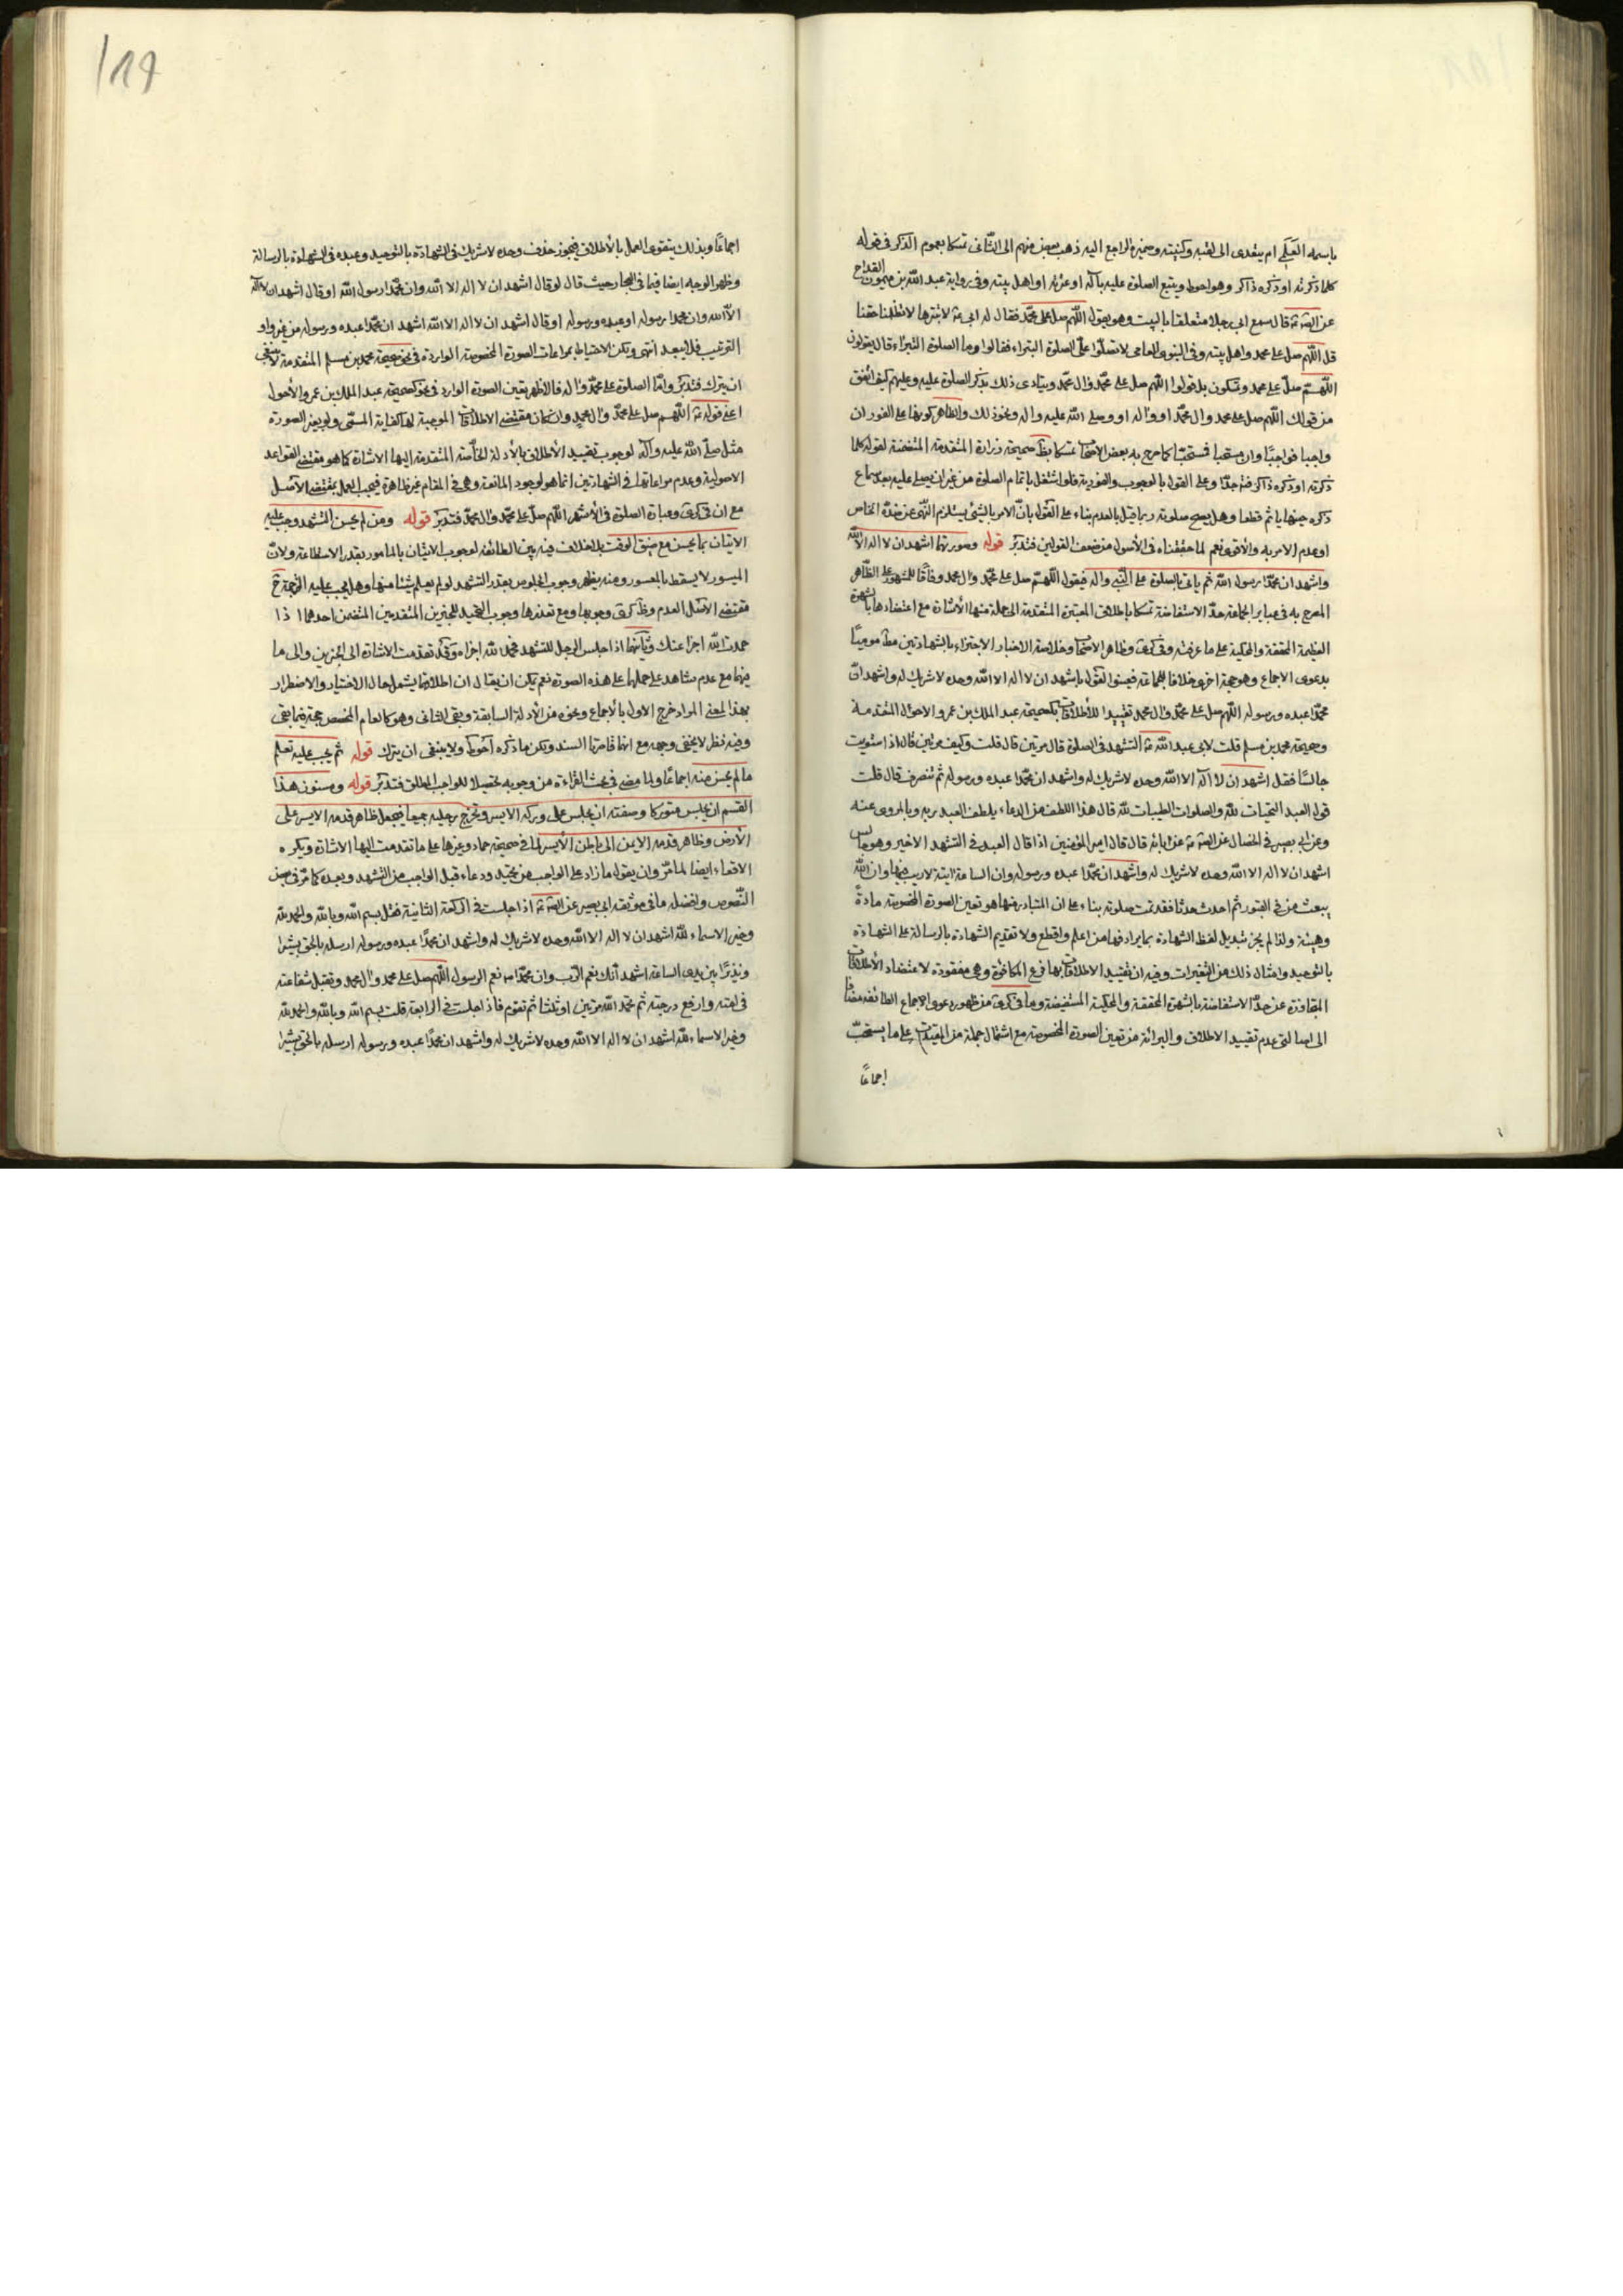 باسمه العَلَمي ام يتعدى الى لقبه وكنيته وضميره الراجع اليه ذهب بعض منهم الى الثانى تمسكا بعموم الذكر فى قوله
كلما ذكرته او ذكره ذاكر وهو احوط ويتبع الصلوة عليه بآله او عترته او اهل بيته وفى رواية عبد الله بن ميمون القداح
قال سمع ابى رجلا متعلقا بالبيت وهو يقول اللهم صل على محمد فقال له ابى لا تبترها لا تظلمنا حقنا
قل اللهم صل على محمد واهل بيته وفى النبوى العامى لا تصلوا علىّ الصلوة البتراء فقالوا وما الصلوة البتراء قال يقولون
اللهم صلّ على محمد وتسكون بل قولوا اللهم صل على محمد وال محمد ويتادى ذلك بذكر الصلوة عليه وعليهم كيف اتفق
من قولك اللهم صل على محمد وال محمد او واله او وصلى الله عليه واله ونحو ذلك والظاهر كونها على الفور ان
واجبا فواجبًا وان مستحبا فمستحبّا كما صرح به بعض تمسكا صحيحة زرارة المتقدمة المتضمنة لقوله كلما
ذكرته او ذكره ذاكر وعلى القول بالوجوب والفورية فلو اشتغل باتمام الصلوة من غير ان يصلى عليه بعد سماع
ذكره حينها ياثم قطعا وهل يصح صلوته ربما قيل بالعدم بناء على القول بانّ الامر بالشئ يستلزم النهى عن ضده الخاص
او عدم الامر به والاقوى نعم لما حققناه فى الأصول من ضعف القولين فتدبر قوله وصورتهما اشهد ان لا اله الا الله
واشهد ان محمدا رسول الله ثم ياتى بالصلوة على النبى واله فيقول اللهم صل على محمد وال محمد وفاقًا للمشهور على الظاهر
المصرح به فى عباير الجماعة حدّ الاستفاضة تمسكا باطلاق المعتبرة المتقدمة الى جملة منها الأشارة مع اعتضادها بالشهرة
العظيمة المحققة والمحكية على ما عرفته وفى وظاهر وخلاصة الاخبار الاجتزاء بالشهادتين
بدعوى الاجماع وهو حجة اخرى خلافا لجماعة فعينوا القول باشهد ان لا اله الا الله وحده لا شريك له واشهد انّ
محمدا عبده ورسوله اللهم صل على محمد وال محمد تقييدا للأطلاقات بكصحيحة عبد الملك بن عمرو الاحول المتقدمة
وصحيحة محمد بن مسلم قلت لابى عبد الله التشهد فى الصلوة قال مرتين قال قلت وكيف مرتين قال اذا استويت
جالسًا فقل اشهد ان لا اله الا الله وحده لا شريك له واشهد ان محمدا عبده ورسوله ثم تنصرف قال قلت
قول العبد التحيات لله والصلوات الطيبات لله قال هذا اللطف من الدعاء يلطف العبد ربه وبالمروى عنه
وعن ابى بصير فى الخصال عن ابائه قال قال امير المؤمنين اذا قال العبد فى التشهد الاخير وهو جالس
اشهد ان لا اله الا الله وحده لا شريك له واشهد ان محمدا عبده ورسوله وان الساعة اتية لا ريب فيها وان الله
يبعث من فى القبور ثم احدث حدثا فقد تمت صلوته بناء على ان المتبادر منها هو تعين الصورة المخصوصة مادةً
وهيئة ولذا لم يجز تبديل لفظ الشهادة بما يرادفها من اعلم واقطع ولا تقديم الشهادة بالرسالة على الشهادة
بالتوحيد وامثال ذلك من التغيرات وفيه ان تقييد الاطلاقات بها فرع المكافئة وهى مفقودة لاعتضاد الأطلاقات
المتجاوزة عن حدّ الاستفاضة بالشهرة المحققة والمحكية المستفيضة وما فى من ظهور دعوى الاجماع
الى اصالتى عدم تقييد الاطلاق والبرائة من تعين الصورة المخصوصة مع اشتمال جملة من المقيدات على ما يستحبّ
اجماعًا
١٨٩
اجماعًا وبذلك يتقوى العمل بالأطلاق فيجوز حذف وحده لا شريك فى الشهادة بالتوحيد وعبده فى الشهادة بالرسالة
وظهر الوجه ايضا فيما فى البحار حيث قال لو قال اشهد ان لا اله الا الله وان محمدا رسول الله او قال اشهد ان لا اله
الا الله وان محمدا رسوله او عبده ورسوله او قال اشهد ان لا اله الا الله اشهد ان محمدا عبده ورسوله من غير واو
الترتيب فلا يبعد انتهى ولكن الاحتياط بمراعات الصورة المخصوصة الواردة فى نحو صحيحة محمد بن مسلم المتقدمة لا ينبغى
ان يترك فتدبر وامّا الصلوة على محمد واله فالاظهر تعين الصورة الوارد فى نحو كصحيحة عبد الملك بن عمرو الأحول
اعنى قوله اللهم صل على محمد وال محمد وان كان مقتضى الاطلاقات الموجبة لها كفاية المسمّى ولو بغير الصورة
مثل صلّى الله عليه وآله لوجوب تقييد الأطلاق بالأدلة الخاصة المتقدمة اليها الاشارة كما هو مقتضى القواعد
الاصولية وعدم مراعاتها فى الشهادتين انما هو لوجود المانعة وهى فى المقام غير ظاهرة فيجب العمل بمقتضى الأصل
مع ان فى وعبارة الصلوة فى الأشهر اللهم صلّ على محمد وال محمد فتدبر قوله ومن لم يحسن التشهد وجب عليه
الاتيان بما يحسن مع ضيق الوقت بلا خلاف فيه بين الطائفة لوجوب الاتيان بالمامور بقدر الاستطاعة ولانّ
الميسور لا يسقط بالمعسور ومنه يظهر وجوب الجلوس بقدر التشهد لو لم يعلم شيئا منها وهل يجب عليه الترجمة ح
مقتضى الأصل العدم وجوبها ومع تعذرها وجوب التحميد للخبرين المتقدمين المتضمن احدهما اذا
حمدت الله اجزأ عنك وثانيهما اذا جلس الرجل للتشهد فحمد لله اجزاه وقد تقدمت الاشارة الى الخبرين والى ما
فيهما مع عدم شاهد على حملهما على هذه الصورة نعم يمكن ان يقال ان اطلاقهما يشمل حال الاختيار والاضطرار
بهذا المعنى المراد خرج الاول بالأجماع ونحوه من الأدلة السابقة وبقى الثانى وهو كالعام المخصص حجة فيما بقى
وفيه نظر لا يخفى وجهه مع انهما قاصرتا السند ولكن ما ذكره أحوط ولا ينبغى ان يترك قوله ثم يجب عليه تعلم
ما لم يحسن منه اجماعًا ولما مضى فى بحث القراءة من وجوبه تحصيلا للواجب المطلق فتدبر قوله ومسنون هذا
القسم ان يجلس متوركا وصفته ان يجلس على وركه الايسر ويخرج رجليه جميعا فيجعل ظاهر قدمه الايسر على
الأرض وظاهر قدمه الايمن الى باطن الأيسر لما فى صحيحة حماد وغيرها على ما تقدمت اليها الاشارة ويكره
الاقعاء ايضا لما مرّ وان يقول ما زاد على الواجب من تحميد ودعاء قبل الواجب من التشهد وبعده كما مرّ فى بعض
النصوص وافضله ما فى موثقة ابى بصير عن اذا جلست فى الركعة الثانية فقل بسم الله وبالله والحمد لله
وخير الاسماء لله اشهد ان لا اله الا الله وحده لا شريك له واشهد ان محمدًا عبده ورسوله ارسله بالحق بشيرا
ونذيرًا بين يدى الساعة اشهد أنك نعم الرب وان محمدا نعم الرسول اللهم صل على محمد وال محمد وتقبل شفاعته
فى امته وارفع درجته ثم تحمد الله مرتين او ثلثا ثم تقوم فاذا جلست فى الرابعة قلت بسم الله وبالله والحمد لله
وخير الاسماء لله اشهد ان لا اله الا الله وحده لا شريك له واشهد ان محمدًا عبده ورسوله ارسله بالحق بشيرا